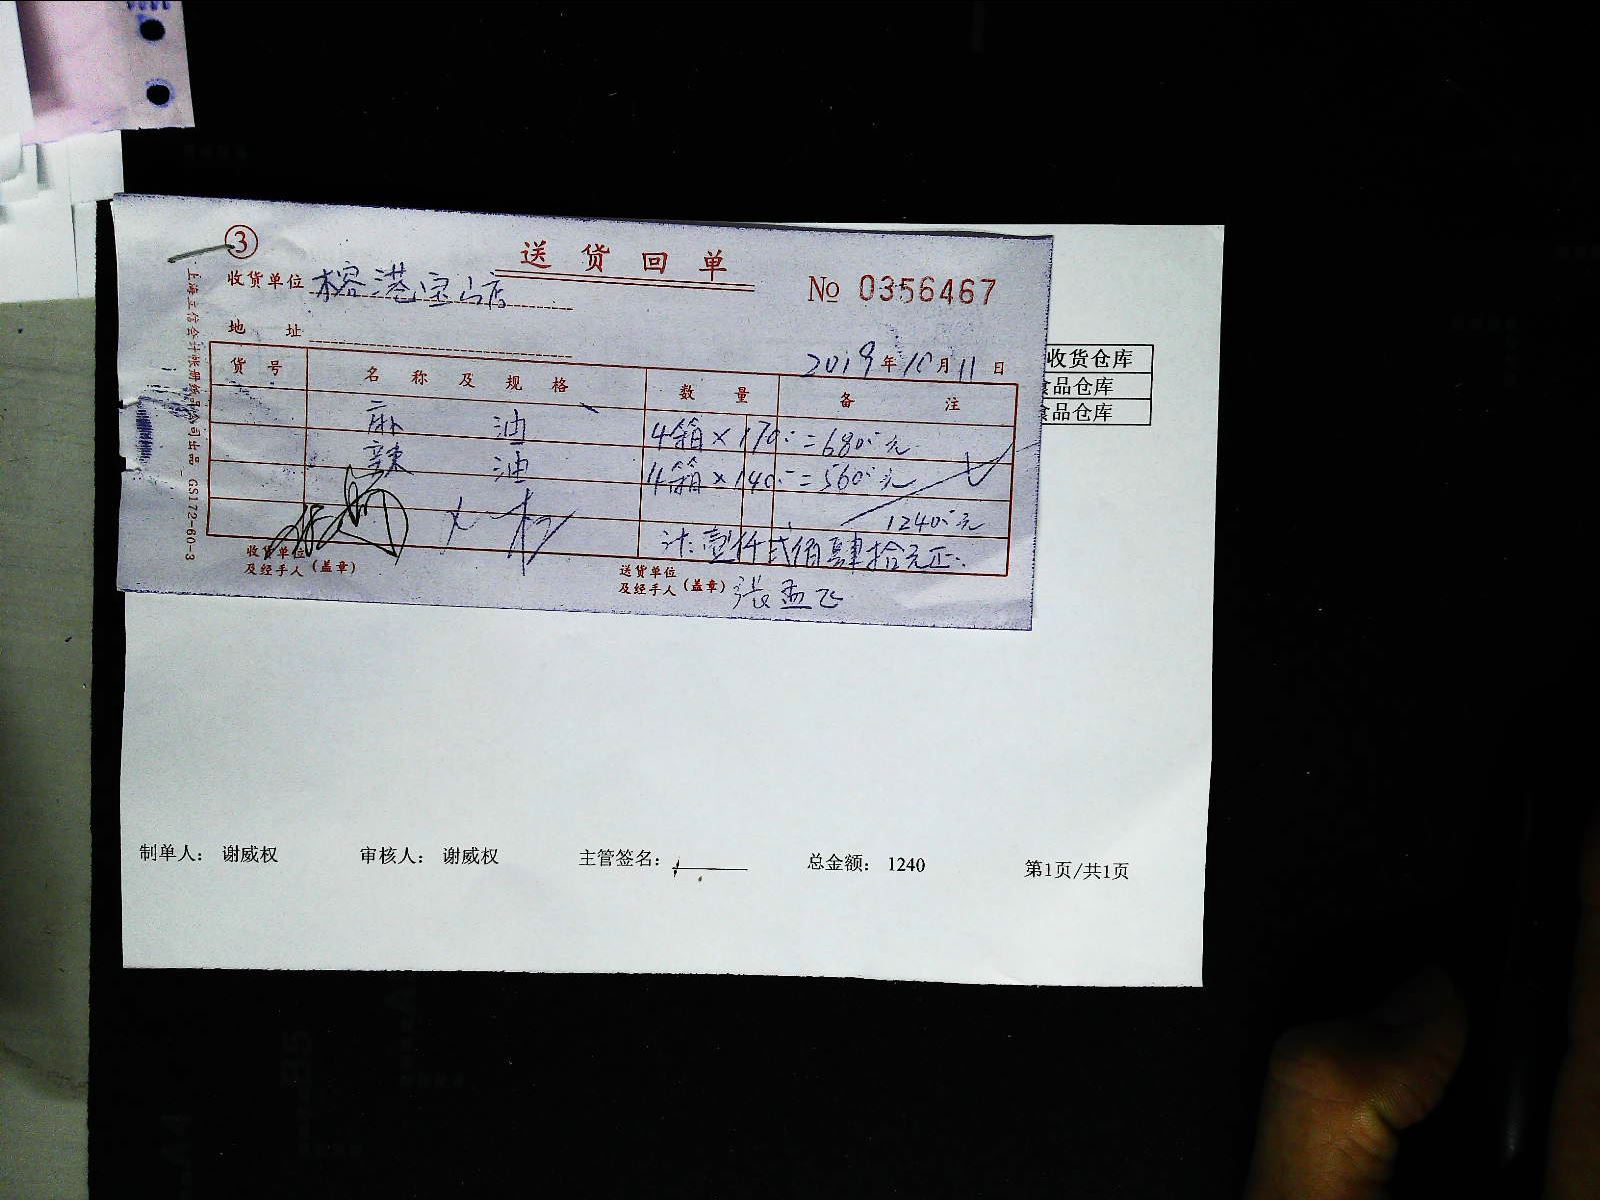 ③
送货回单
收货单位 榕港宝山店
№ 0356467
地址
2019年10月11日
上海立信会计账册纸品公司出品 GS172-60-3
货号 名称及规格 数量 备注
麻油 4箱×170:=680:元
辣油 4箱×140:=560:元
1240:元
计:壹仟贰佰肆拾元正.
收货单位
及经手人(盖章)
送货单位
及经手人(盖章) 張孟飞
收货仓库
食品仓库
食品仓库
制单人: 谢威权 审核人: 谢威权 主管签名: 总金额: 1240 第1页/共1页